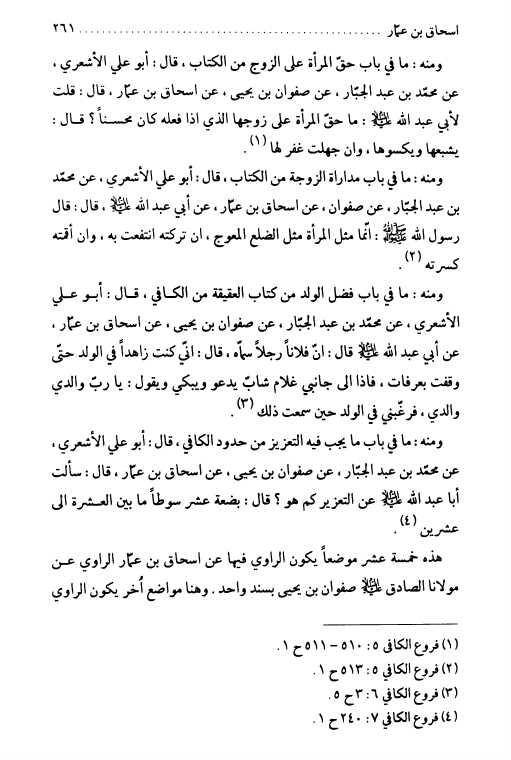 اسحاق بن عمّار ........................................................ ٢٦١
ومنه : ما في باب حقّ المرأة على الزوج من الكتاب ، قال : أبو علي الأشعري ،
عن محمّد بن عبد الجبّار ، عن صفوان بن يحيى ، عن اسحاق بن عمّار ، قال : قلت
لأبي عبد الله عليه‌السلام : ما حقّ المرأة على زوجها الذي اذا فعله كان محسناً ؟ قال :
يشبعها ويكسوها ، وان جهلت غفر لها (١) .
ومنه : ما في باب مداراة الزوجة من الكتاب ، قال : أبو علي الأشعري ، عن محمّد
بن عبد الجبّار ، عن صفوان ، عن اسحاق بن عمّار ، عن أبي عبد الله عليه‌السلام ، قال : قال
رسول الله صلى‌الله‌عليه‌وآله : انّما مثل المرأة مثل الضلع المعوج ، ان تركته انتفعت به ، وان أقمته
كسرته (٢) .
ومنه : ما في باب فضل الولد من كتاب العقيقة من الكافي ، قال : أبو علي
الأشعري ، عن محمّد بن عبد الجبّار ، عن صفوان بن يحيى ، عن اسحاق بن عمّار ،
عن أبي عبد الله عليه‌السلام قال : انّ فلاناً رجلاً سمّاه ، قال : انّي كنت زاهداً في الولد حتّى
وقفت بعرفات ، فاذا الى جانبي غلام شابّ يدعو ويبكي ويقول : يا ربّ والدي
والدي ، فرغّبني في الولد حين سمعت ذلك (٣) .
ومنه : ما في باب ما يجب فيه التعزيز من حدود الكافي ، قال : أبو علي الأشعري ،
عن محمّد بن عبد الجبّار ، عن صفوان بن يحيى ، عن اسحاق بن عمّار ، قال : سألت
أبا عبد الله عليه‌السلام عن التعزير كم هو ؟ قال : بضعة عشر سوطاً ما بين العشرة الى
عشرين (٤) .
هذه خمسة عشر موضعاً يكون الراوي فيها عن اسحاق بن عمّار الراوي عن
مولانا الصادق عليه‌السلام صفوان بن يحيى بسند واحد . وهنا مواضع اُخر يكون الراوي
(١) فروع الكافي ٥ : ٥١٠ – ٥١١ ح ١ .
(٢) فروع الكافي ٥ : ٥١٣ ح ١ .
(٣) فروع الكافي ٦ : ٣ ح ٥ .
(٤) فروع الكافي ٧ : ٢٤٠ ح ١ .